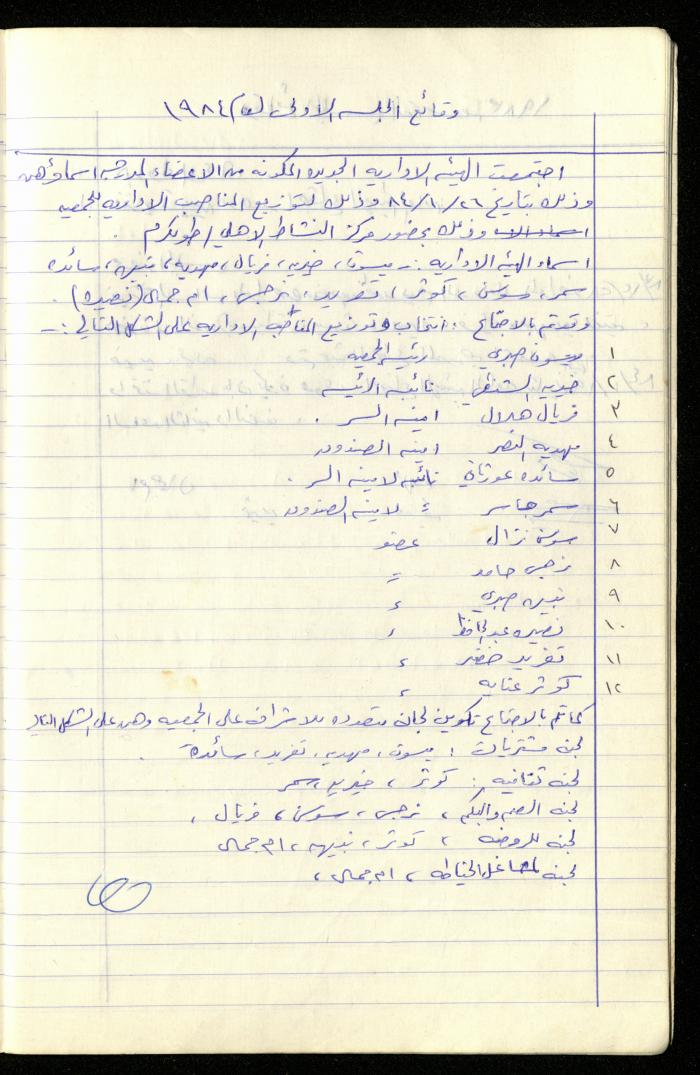 وقائع الجلسه الاولى لعام ١٩٨٤
اجتمعت الهيئه الاداريه الجديده المكونه من الاعضاء المدرجه اسماؤهن
وذلك بتاريخ ٢٦/١/٨٤ وذلك لتوزيع المناصب الاداريه للجمعيه
وذلك بحضور مركز النشاط الاهلي / طولكرم .
اسماء الهيئه الاداريه :- ميسون، خديجه، فريال، مهديه، نبيهه، سائده
سمر، سوسن، كوثر، تغريد، نرجس، ام جمال (نصيره) .
وقد تم بالاجتماع انتخاب وتوزيع المناصب الاداريه على الشكل التالي :-
١ ميسون صبري رئيسه الجمعيه
٢ خديجه نائبه الرئيسه
٣ فريال هلال امينه السر .
٤ مهديه النصر امينه الصندوق
٥ سائده نائبه لامينه السر .
٦ سمر لامينه الصندوق
٧ سوسن نزال عضو
٨ نرجس حامد =
٩ نبيهه صبري ء
١٠ نصيره عبد الحافظ ء
١١ تغريد خضر ء
١٢ كوثر عنايه ء
كما تم بالاجتماع تكوين لجان متعدده للاشراف على الجمعيه وهي على الشكل التالي
لجنه مشتريات : ميسون، مهديه، تغريد، سائدة .
لجنه ثقافيه : كوثر، خديجه، سمر
لجنه الصم والبكم، نرجس، سوسن، فريال .
لجنه للروضه ، كوثر، نبيهه، ام جمال
لجنه لمشاغل الخياطه ، ام جمال ،